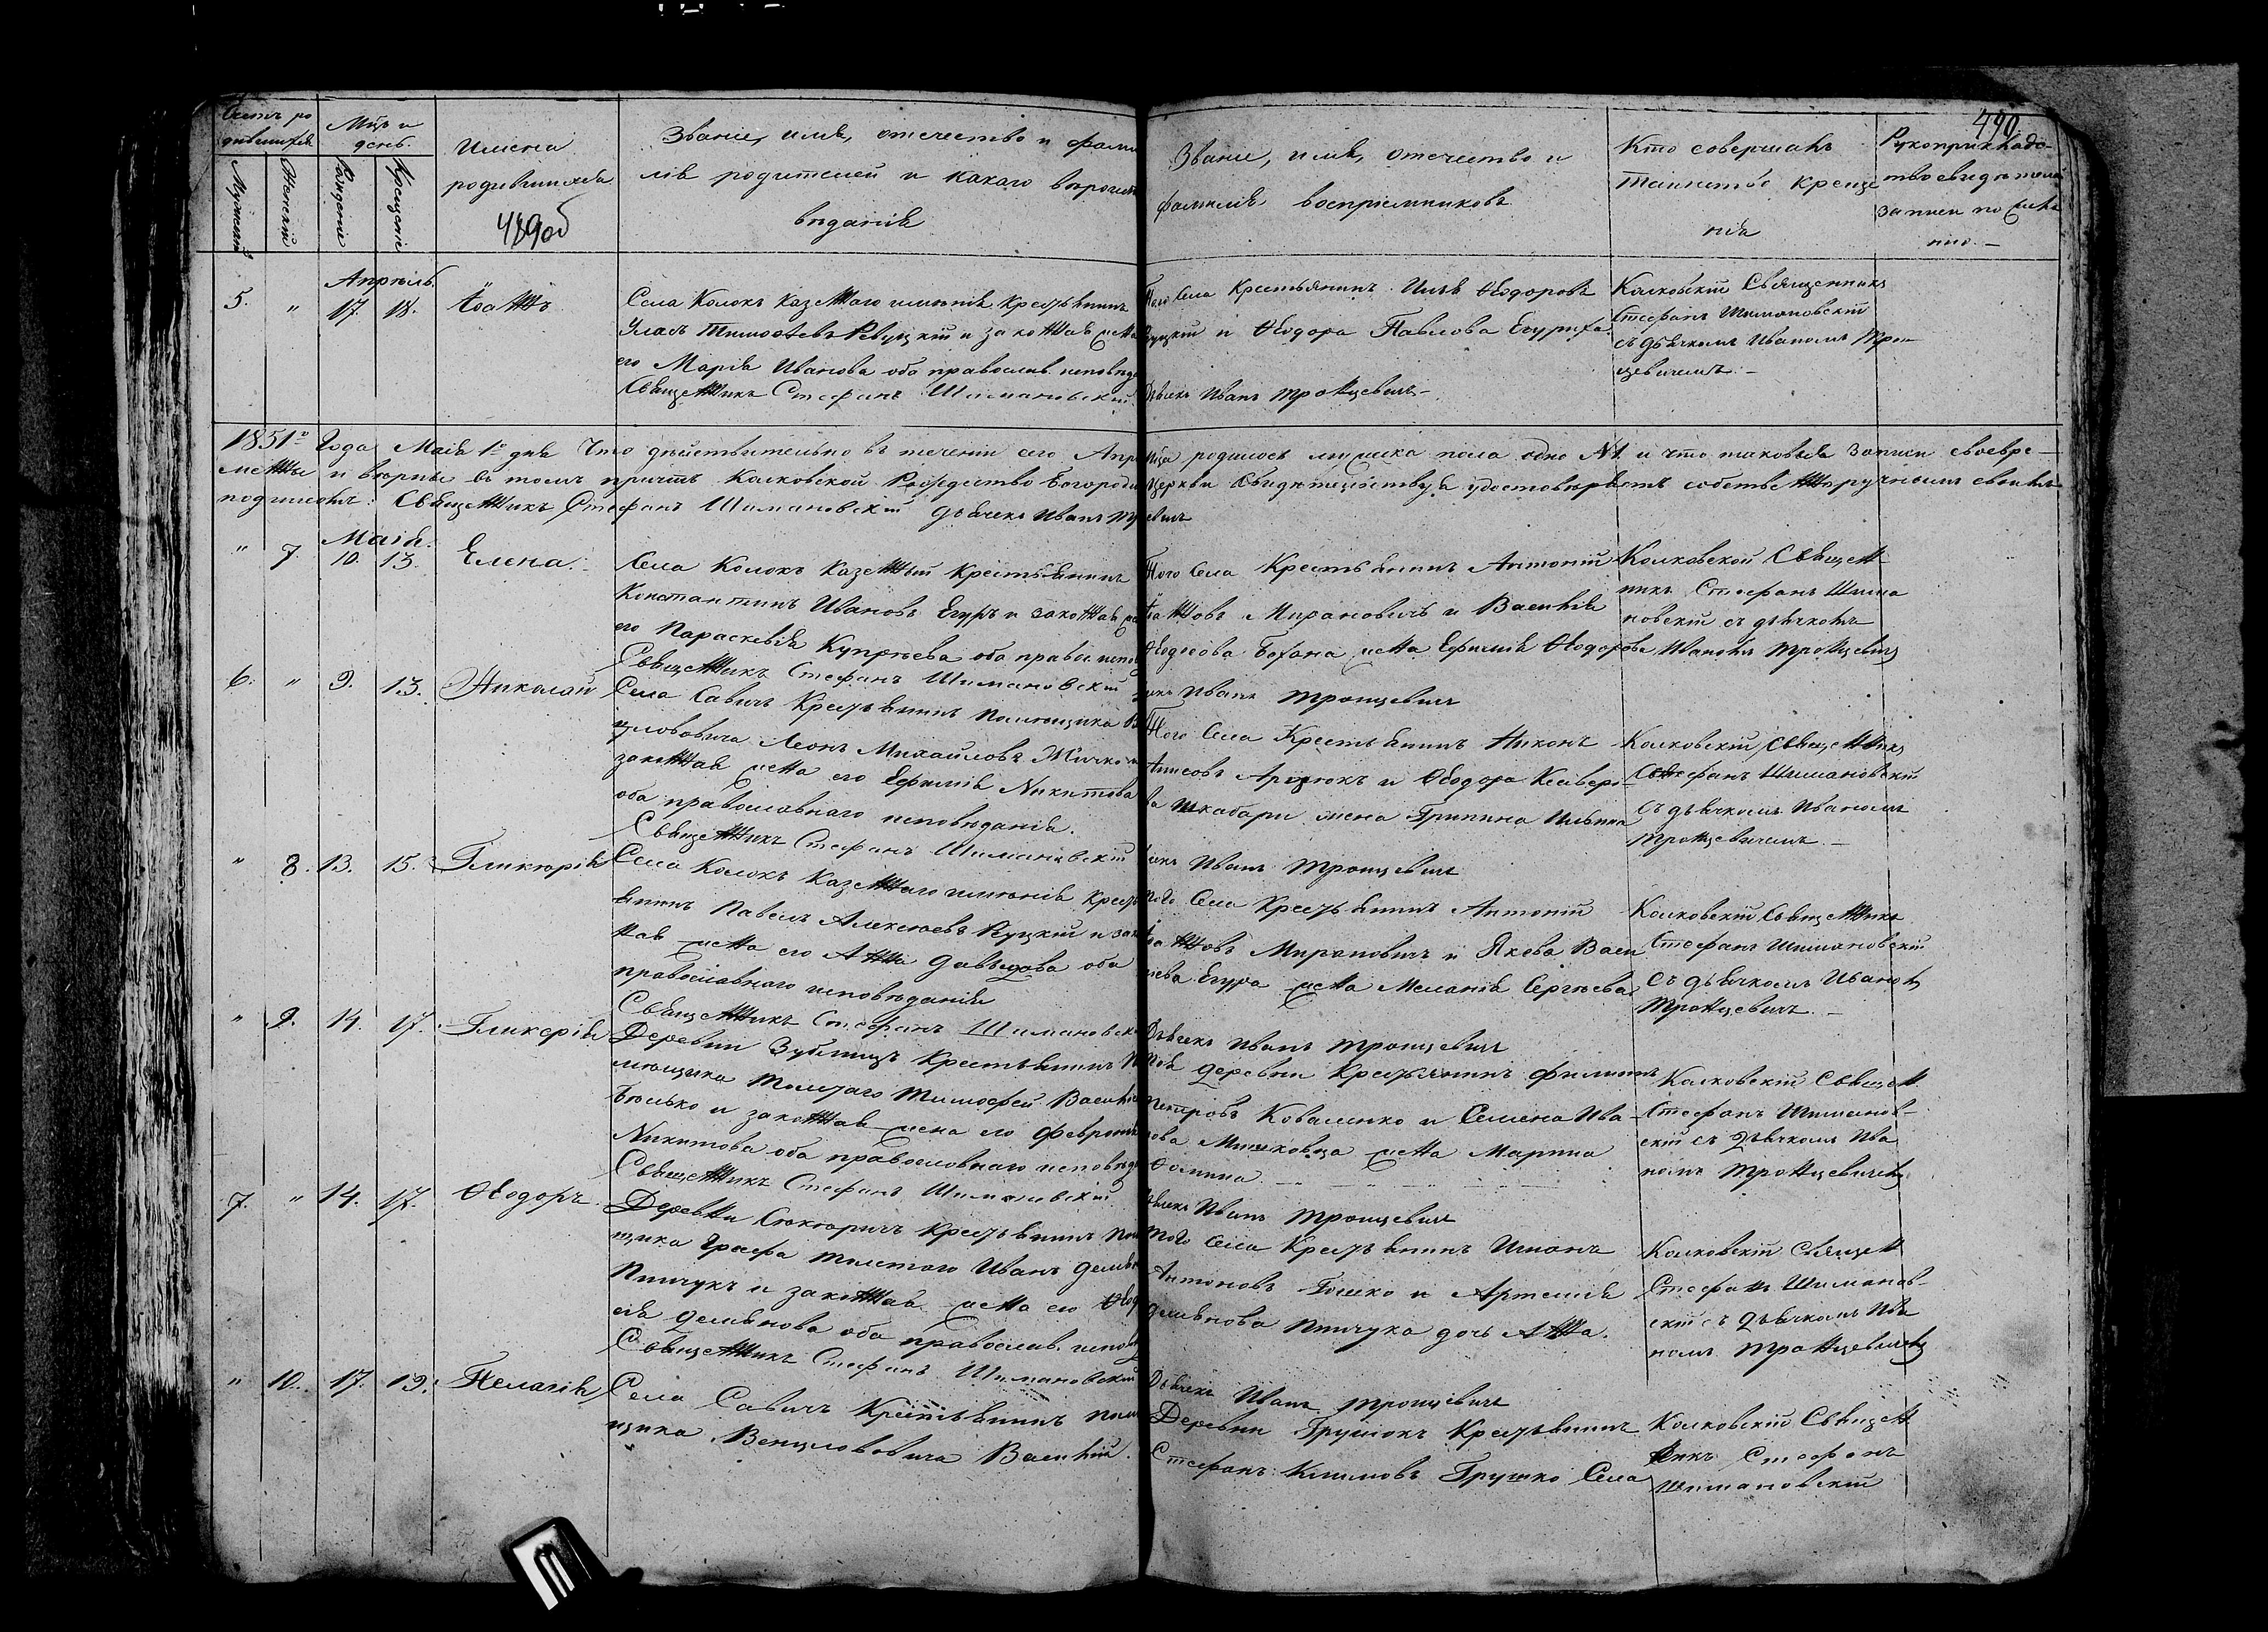 490.
Счетъ ро
дившихся
Мцъ и
день.
Мужескій
Женскій
Рожденіе
Крещеніе
Имена
родившихся
489об
Званіе, имя, отечество и фами
лія родителей и какого вѣроиспо
вѣданія
Званіе, имя, отечество и
фамилія воспріемниковъ
Кто совершалъ
таинство креще
нія
Рукоприкладс-
тво свидѣтелей
записи по
Апрѣль.
5. " 17. 18. Іоаннъ
Села Колокъ казеннаго имѣнія крестьянинъ
Уласъ Тимофеевъ Ревуцкій и законная жена
его Марія Иванова оба православ. исповѣд
Священникъ Стефанъ Шимановскій
Того села крестьянинъ Илія Ѳеодоровъ
Ѳеодора Павлова
Дьячекъ Иванъ Тронцевичъ
Колковскій Священникъ
Стефанъ Шимановскій
съ дьячкомъ Иваномъ Трон
цевичемъ.
1851го Года Маія 1го дня Что дѣйствительно въ теченіи сего Апр
мѣца родилось мужеска пола одно №1. и что таковыя записи своевре-
менны и вѣрны въ томъ причтъ Колковской Рождество Богороди
Церкви свидѣтельствуя удостовѣряетъ собственноручнымъ своимъ
подписомъ: Священникъ Стефанъ Шимановскій дьячекъ Иванъ Тр
Маія.
" 7. 10. 13. Елена.
Села Колокъ казенный крестьянинъ
Константинъ Ивановъ Егуръ и законная
его Параскевія Купріева оба правос. испов
Священникъ Стефанъ Шимановскій
Того села крестьянинъ Антоній
Іоанновъ Мирановичъ и Василія
Ѳеодосова Бохана жена Ефимія Ѳеодорова
Иванъ Тронцевичъ
Колковской Священ
никъ Стефанъ Шима
новскій съ дьячкомъ
Иваномъ Тронцевич
6. " 9. 13. Николай
Села Савичъ крестьянинъ помѣщика
Леонъ Михайловъ Жичко
законная жена его Ефимія Никитова
оба православнаго исповѣданія.
Священникъ Стефанъ Шимановскій
Того села крестьянинъ Никонъ
и Ѳеодора
Шкабари жена Грипина Ильина
Иванъ Тронцевичъ
Колковскій Священникъ
Стефанъ Шимановскій
съ дьячкомъ Иваномъ
Тронцевичемъ.
" 8. 13. 15. Гликерія
Села Колокъ казеннаго имѣнія крест
янинъ Павелъ Алексіевъ Реуцкій и зак
ная жена его Анна Давыдова оба
православнаго исповѣданія
Священникъ Стефанъ Шимановск
того села крестьянинъ Антоній
Іоанновъ Мирановичъ и Якова Васи
лева Егура жена Меланія Сергѣева
Дьячекъ Иванъ Тронцевичъ
Колковскій Священникъ
Стефанъ Шимановскій
съ дьячкомъ Иваном
Тронцевичъ.
" 9. 14. 17. Гликерія
Деревни Зубницъ крестьянинъ По
мѣщика Толстаго Тимофей Василі
Бѣлько и законная жена его Февронія
Никитова оба православнаго исповѣд
Священникъ Стефанъ Шимановскій
той деревни крестьянинъ Филиппъ
Петровъ Коваленко и Семена Ива
нова жена Марина
Ѳомина
Иванъ Тронцевичъ
Колковскій Священ
Стефанъ Шиманов-
скій съ дьячкомъ Ива
номъ Тронцевичем
7. " 14. 17. Ѳеодоръ.
Деревни крестьянинъ пом
щика Графа Толстого Иванъ Демья
Пинчукъ и законная жена его Ѳеод
сія Демянова оба православ. испов
Священникъ Стефанъ Шимановскій
того села крестьянинъ
Антоновъ Гошко и Артемія
Демьнова Пинчука дочь Анна.
Дьячекъ Иванъ Тронцевичъ
Колковскій Священ
Стефанъ Шиманов-
скій съ дьячкомъ Ива
номъ Тронцевичем
" 10. 17. 19. Пелагія
Села Савичъ крестьянинъ пом
щика Венцлововича Василій.
Деревни Грушокъ крестьянинъ
Стефанъ Климовъ Грушко Села
Колковскій Священ
никъ Стефанъ
Шимановскій